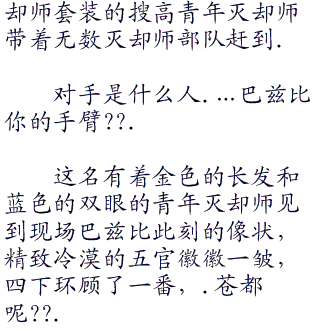 却师套装的搜高青年灭却师
带着无数灭却师部队赶到.
对手是什么人. ...巴兹比
你的手臂??.
这名有着金色的长发和
蓝色的双眼的青年灭却师见
到现场巴兹比此刻的像状，
精致冷漠的五官徽徽一皱，
四下环顾了一番，. 苍都
呢??.